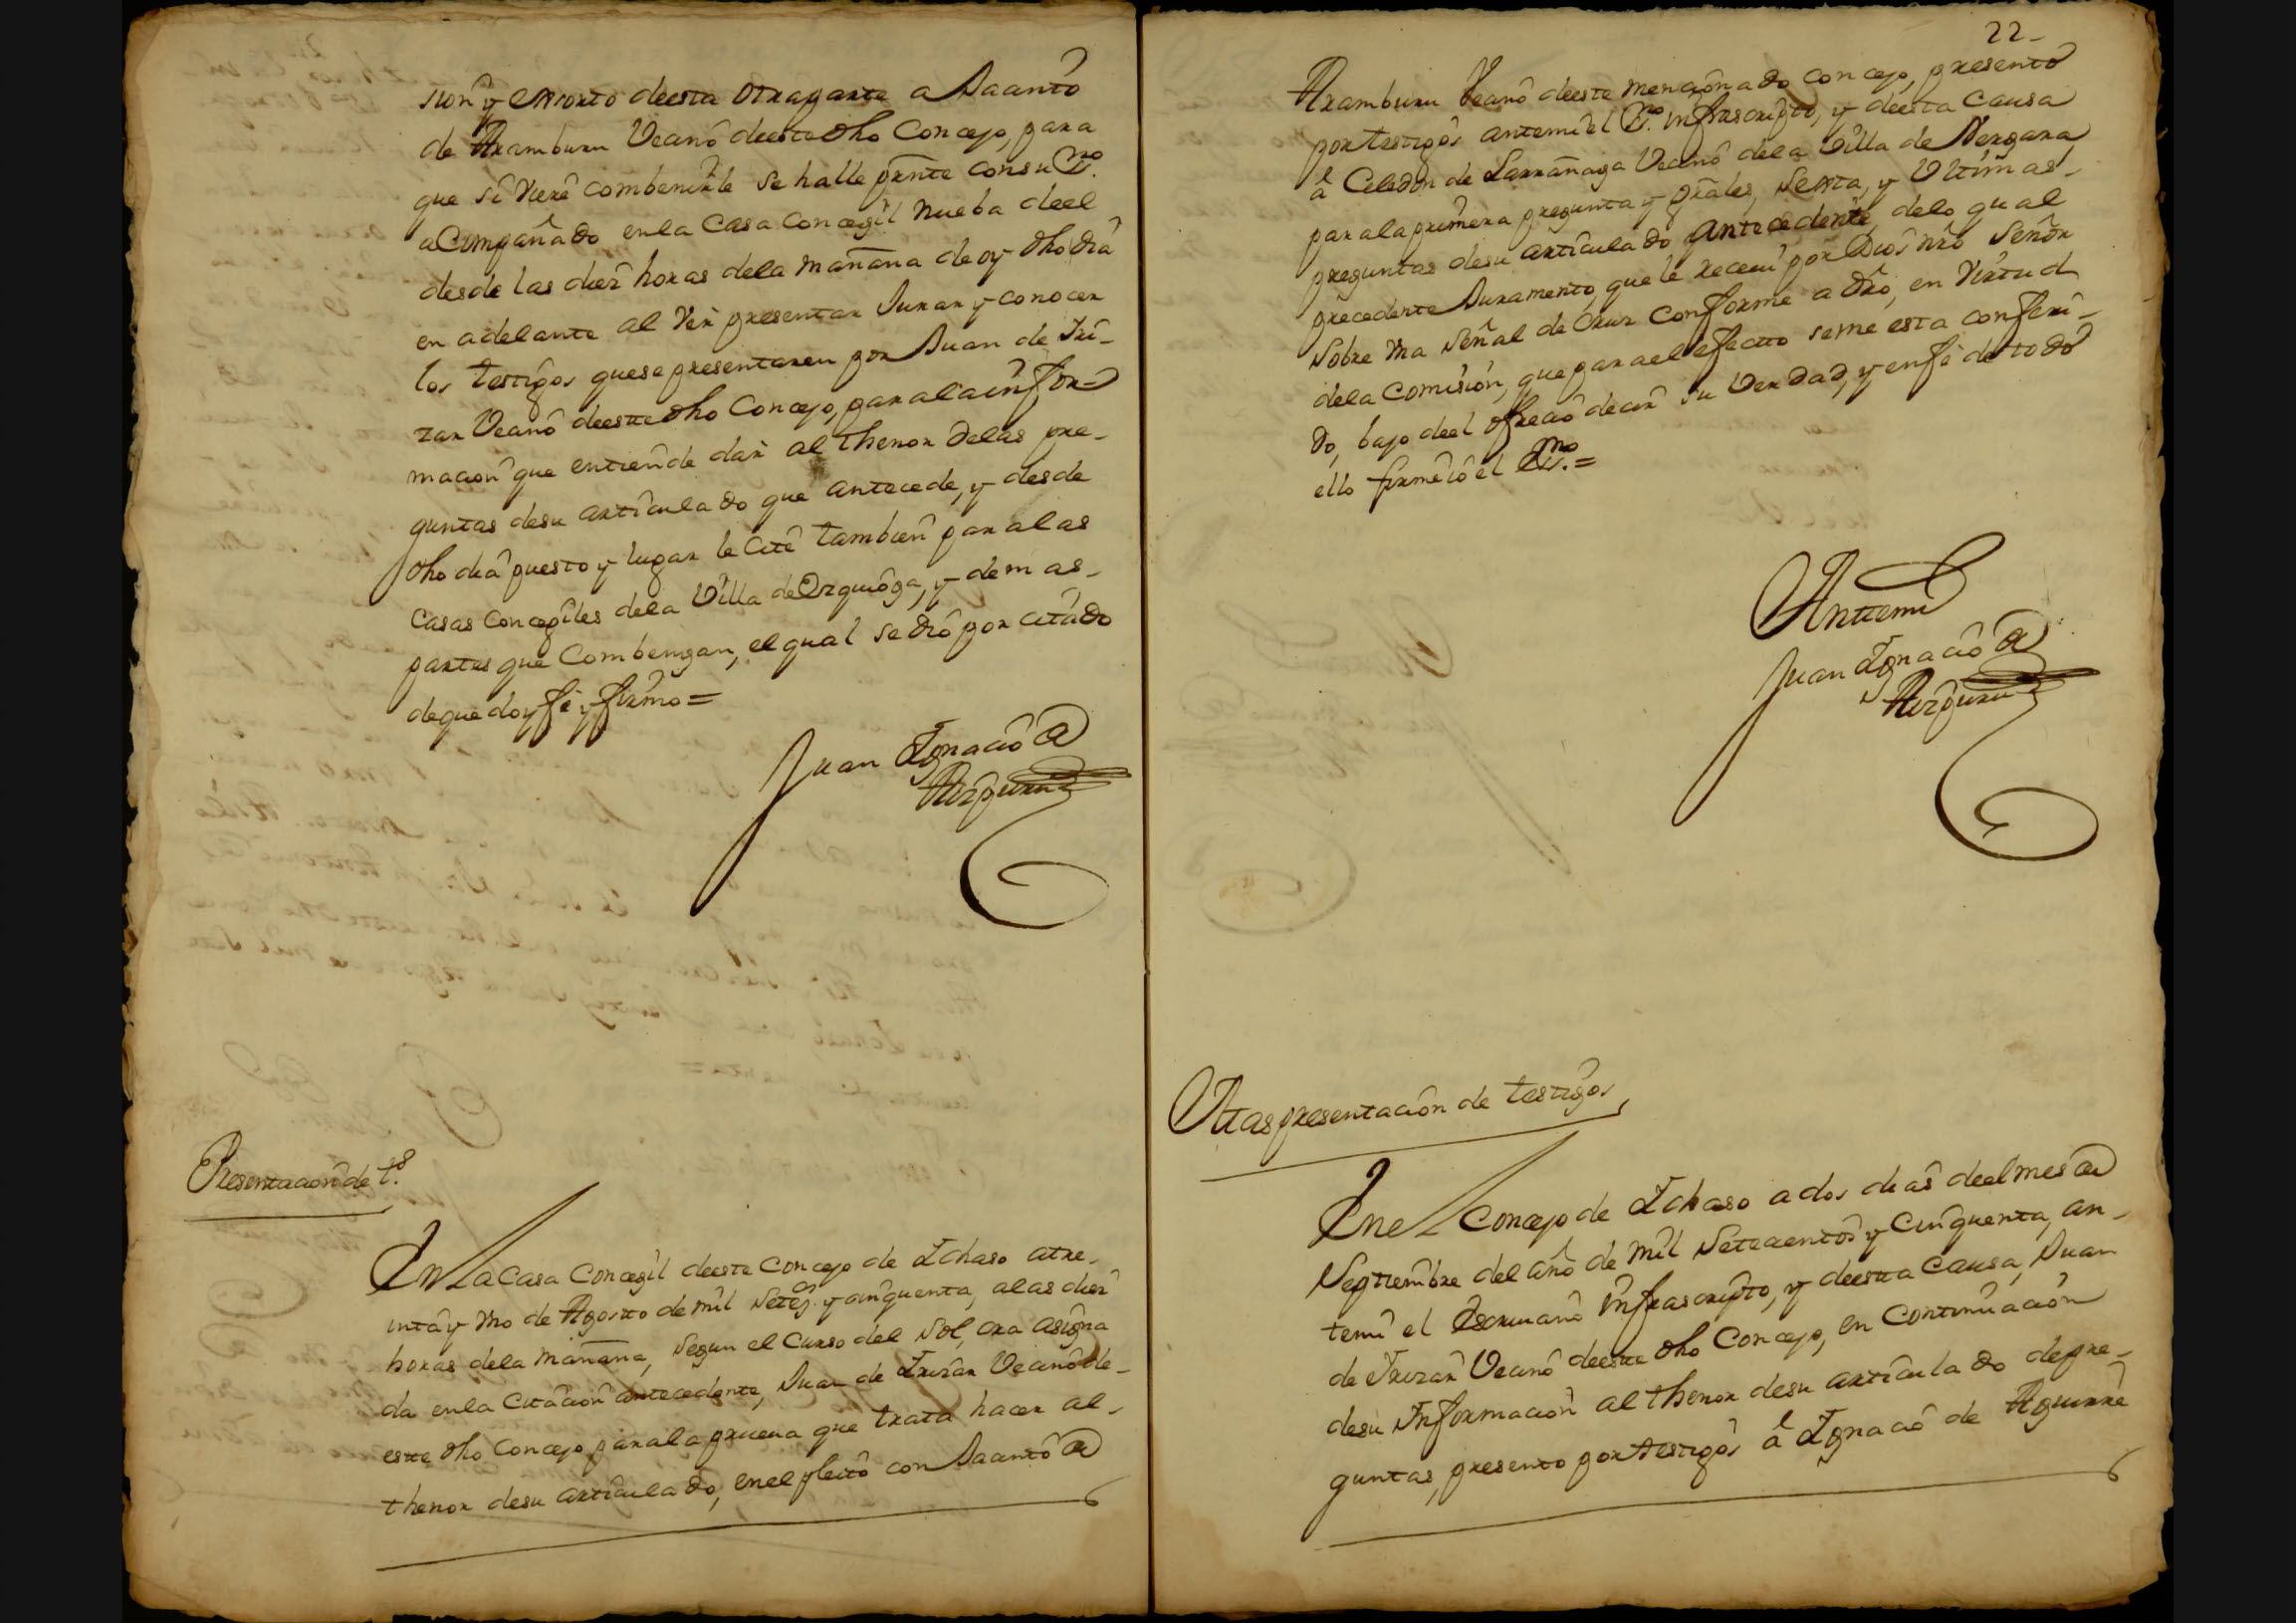 sion, y exsorto deesta otra parte a Jacinto
de Aramburu Vecino deeste dho Concejo, para
que si viere combenirle se halle presnte con su Essno.
acompañado en la Casa Concegil nueba deel
desde las diez horas dela mañana de oy dho dia
en adelante al Ver presentar Jurar y conocer
los testigos que se presentaren por Juan de Iri-
zar Vecino deeste dho Concejo, para la infor-
macion que entiende dar al thenor delas pre-
guntas desu articulado que antecede, y desde
dho dia puesto y lugar le cite tambien para las
Casas Concegiles dela Villa de Ezquioga, y demas
partes que Combengan, el qual se dio por citado
de que doy fé y firmo =
Juan Ignacio de
Aizpuru
Presentacion de ts.
En la Casa Concegil deeste Concejo de Ichaso atre-
inta y uno de Agosto de mil Setezs. y cinquenta, a las diez
horas dela mañana, segun el Curso del Sol, ora asigna
da en la Citacion antecedente, Juan de Irizar Vecino de-
este dho Concejo para la prueua que trata hacer al
thenor desu articulado, en el pleito con Jacinto de
22
Aramburu Vecino deeste mencionado Concejo, presentó
por testigos ante mi el Essno. infrascripto, y deesta Causa
à Celedon de Larrañaga Vecino dela Villa de Vergara
para la primera pregunta y grales, Sexta, y Ultimas
preguntas desu articulado antecedente, delo qual
precedente Juramento, que le receui por Dios nro Señor
sobre una Señal de Cruz conforme a dro, en virtud
dela Comision, que para el efecto se me esta conferi-
do, bajo deel ofrecio decir su verdad, y en fé de todo
ello firmé io el Essno. =
Ante mi
Juan Ignacio de
Aizpuru
Otras presentacion de testigos
En el Concejo de Ichaso a dos dias deel mes de
Septiembre del año de mil Setecientos y Cinquenta, an-
te mi el Escriuano infrascripto, y deesta Causa, Juan
de Irizar Vecino deeste dho Concejo, en continuacion
desu Informacion al thenor desu articulado de pre-
guntas, presento por testigos à Ignacio de Aguirre